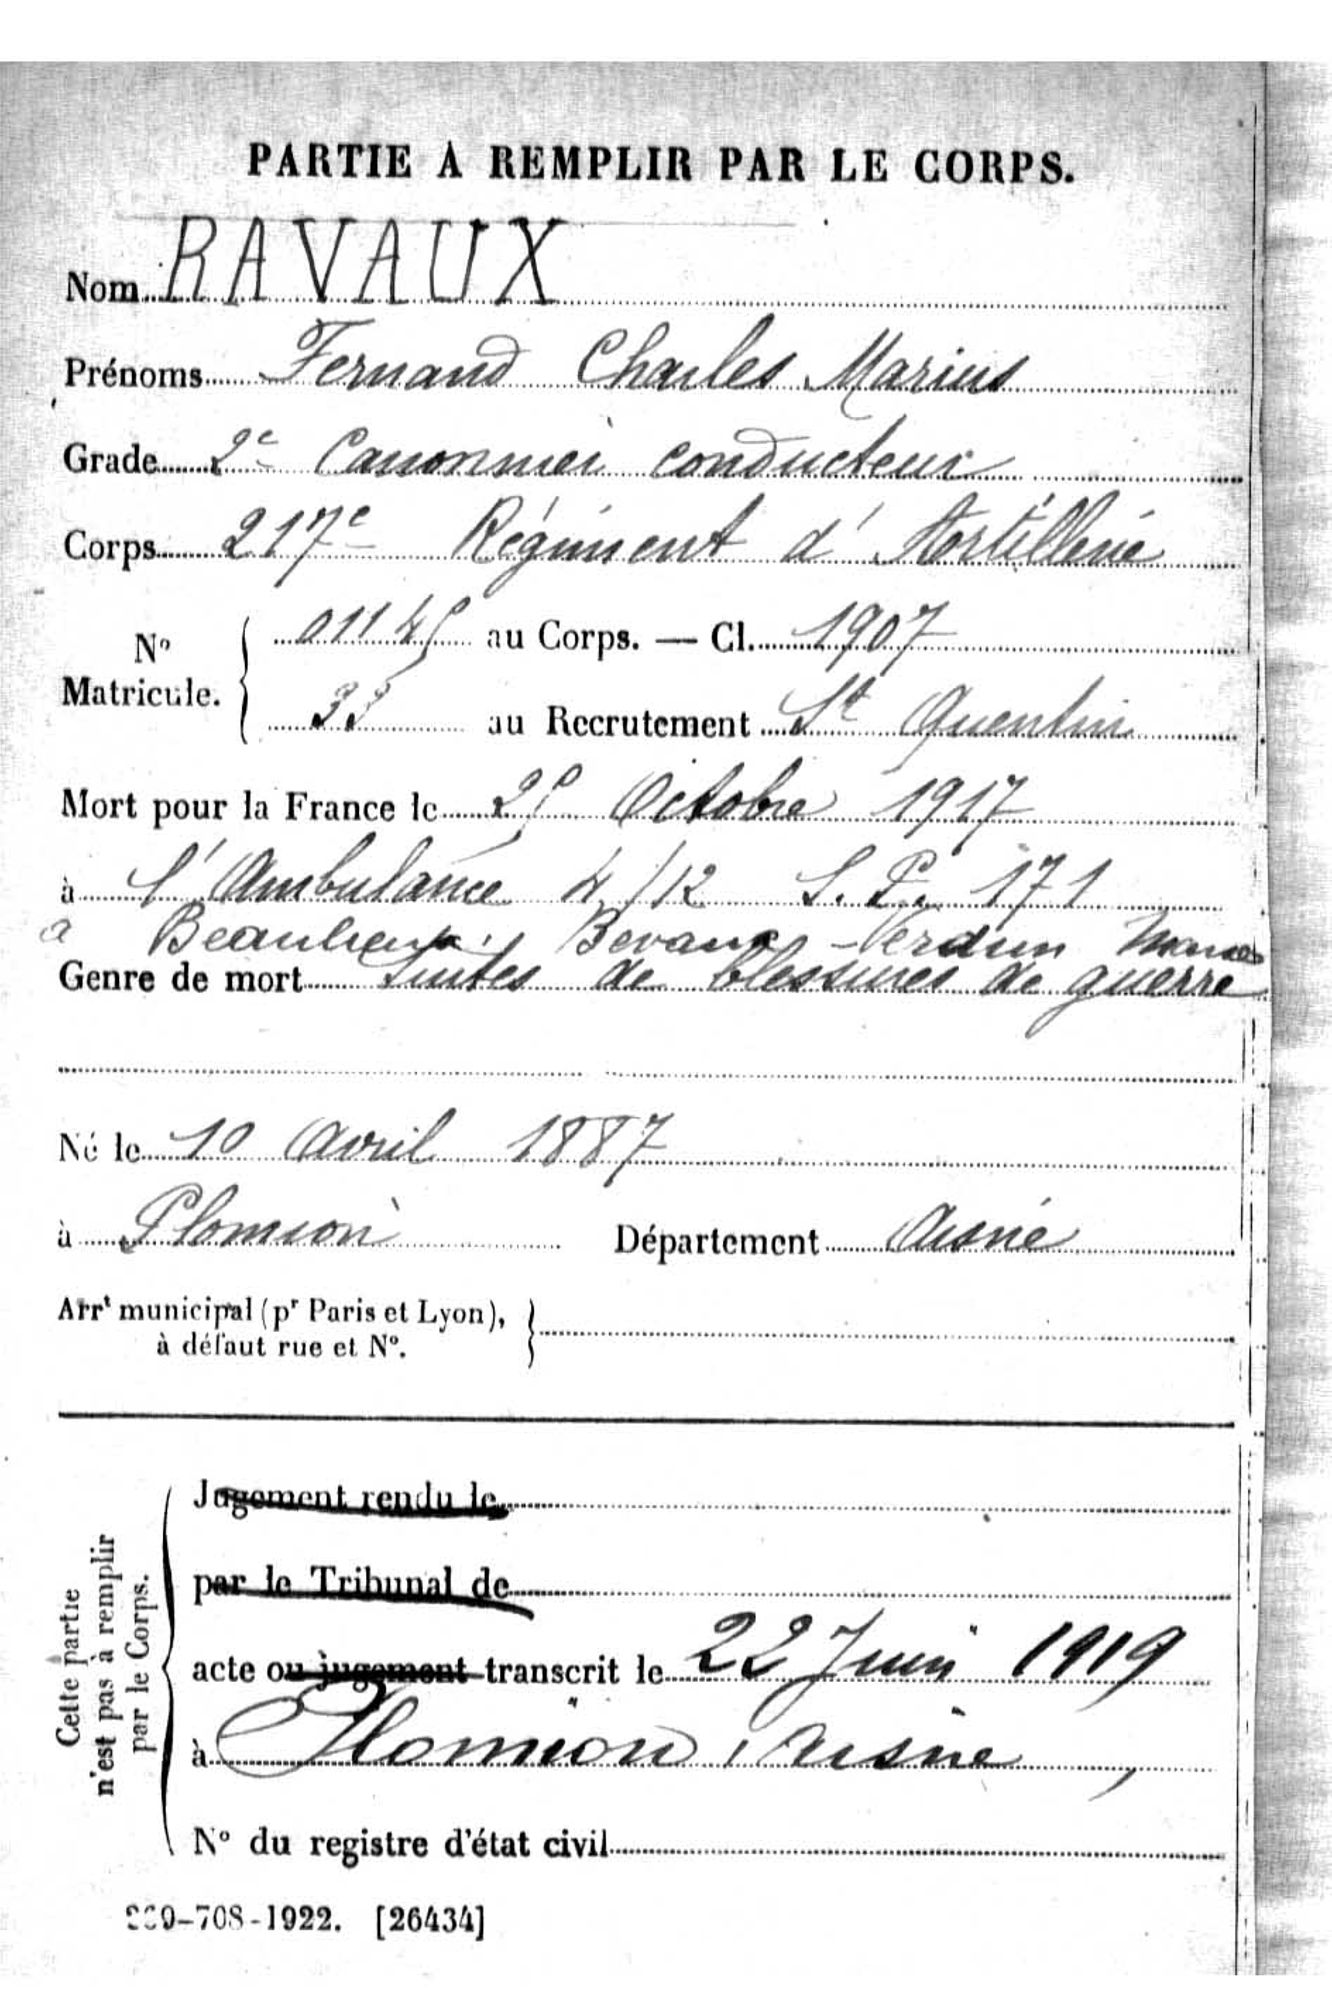 PARTIE A REMPLIR PAR LE CORPS.
Nom RAVAUX
Prénoms Fernand Charles Marius
Grade 2e Canonnier conducteur
Corps 217e Régiment d'Artillerie
No Matricule. 01145 au Corps. — Cl. 1907
33 au Recrutement St Quentin
Mort pour la France le 25 Octobre 1917
à l'Ambulance 4/12 S.P. 171
a Beaulieux Verdun Meuse
Genre de mort Suites de blessures de guerre
Né le 10 Avril 1887
à Plomion Département Aisne
Arrt municipal (pr Paris et Lyon),
à défaut rue et No.
Cette partie
n'est pas à remplir
par le Corps.
Jugement rendu le
par le Tribunal de
acte ou jugement transcrit le 22 Juin 1919
à Plomion, Aisne
No du registre d'état civil
-708-1922. [26434]